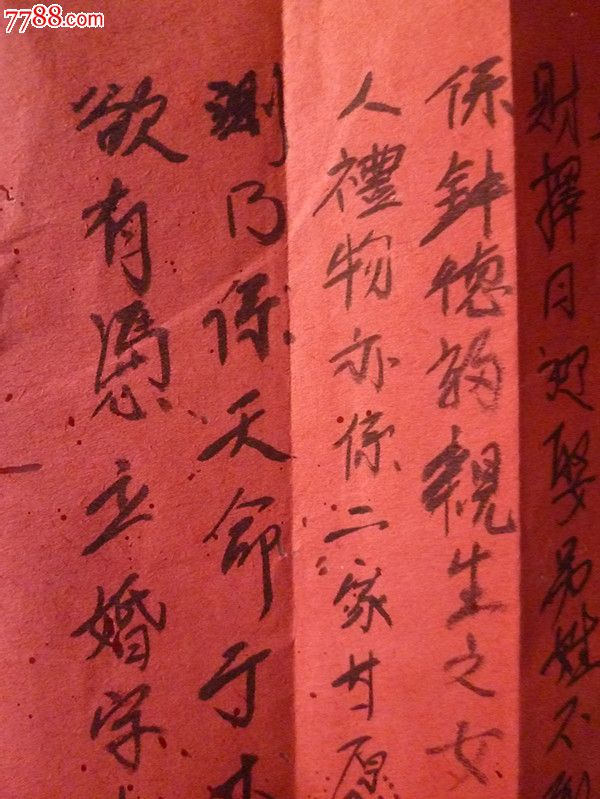 7788.com
財擇日迎娶另姓不
係鉢德的親生之女
人禮物亦係二家甘原
測乃係天命于
欲有憑立婚字